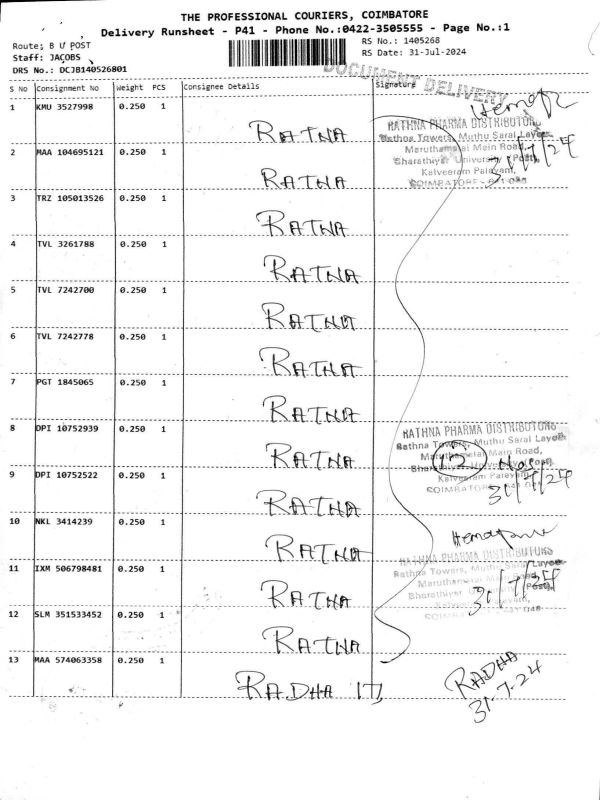 THE PROFESSIONAL COURIERS, COIMBATORE
Delivery Runsheet - P41 - Phone No.:0422-3505555 - Page No.:1
Route: B U POST
RS No.: 1405268
Staff: JACOBS
RS Date: 31-Jul-2024
DRS No.: DCJB140526801
DOCUMENT DELIVERY
S No Consignment No Weight PCS Consignee Details Signature
1 KMU 3527998 0.250 1 RATNA
RATHNA PHARMA DISTRIBUTORS
Rathna Towers, Muthu Sarai Layout
Maruthamalai Main Road,
Bharathiyar University (Post),
Kalveeram Palayam,
COIMBATORE - 641 046
31/7/24
2 MAA 104695121 0.250 1 RATNA
3 TRZ 105013526 0.250 1 RATNA
4 TVL 3261788 0.250 1 RATNA
5 TVL 7242700 0.250 1 RATNA
6 TVL 7242778 0.250 1 RATNA
7 PGT 1845065 0.250 1 RATNA
8 DPI 10752939 0.250 1 RATNA
RATHNA PHARMA DISTRIBUTORS
Rathna Towers, Muthu Sarai Layout
Maruthamalai Main Road,
Bharathiyar University (Post),
Kalveeram Palayam,
COIMBATORE - 641 046
12
31/7/24
9 DPI 10752522 0.250 1 RATNA
10 NKL 3414239 0.250 1 RATNA
11 IXM 506798481 0.250 1 RATNA
RATHNA PHARMA DISTRIBUTORS
Rathna Towers, Muthu Sarai Layout
31/7/24
12 SLM 351533452 0.250 1 RATNA
13 MAA 574063358 0.250 1 RADHA
RADHA
31.7.24